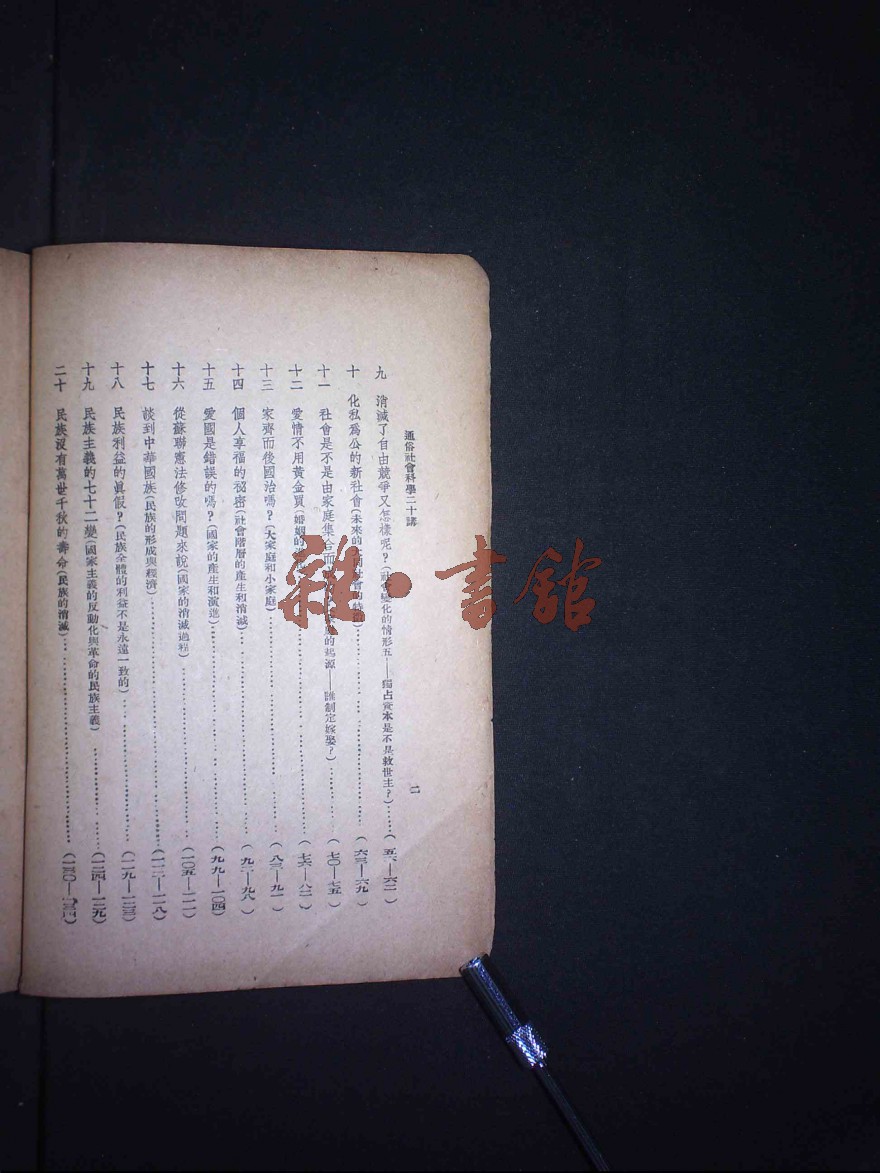 通俗社會科學二十講
二
九 消滅了自由競爭又怎樣呢？(社會變化的情形五——獨占資本是不是救世主？)……(五六—六二)
十 化私爲公的新社會(未來的　　社會的特徵)……(六三—六九)
十一 社會是不是由家庭集合而　　的起源——誰制定嫁娶？)……(七〇—七五)
十二 愛情不用黃金買(婚姻的……(七六—八二)
十三 家齊而後國治嗎？(大家庭和小家庭)……(八三—九一)
十四 個人享福的祕密(社會階層的產生和消滅)……(九二—九八)
十五 愛國是錯誤的嗎？(國家的產生和演進)……(九九—一〇四)
十六 從蘇聯憲法修改問題來說(國家的消滅過程)……(一〇五—一一一)
十七 談到中華國族(民族的形成與經濟)……(一一二—一一八)
十八 民族利益的眞假？(民族全體的利益不是永遠一致的)……(一一九—一二三)
十九 民族主義的七十二變(國家主義的反動化與革命的民族主義)……(一二四—一二九)
二十 民族沒有萬世千秋的壽命(民族的消滅)……(一三〇—
雜·書館